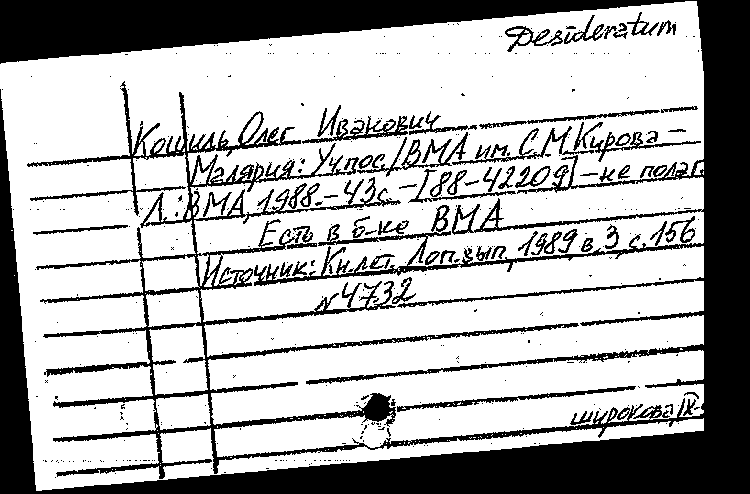 Desideratum
Кошиль, Олег Иванович
Малярия: Уч.пос./ВМА им. С.М.Кирова –
Л.: ВМА, 1988.–43с.–[88–42209] – не полаг.
Есть в б-ке ВМА
Источник: Кн.лет. Доп.вып., 1989 в.3, с.156
№4732
широкова, IX-